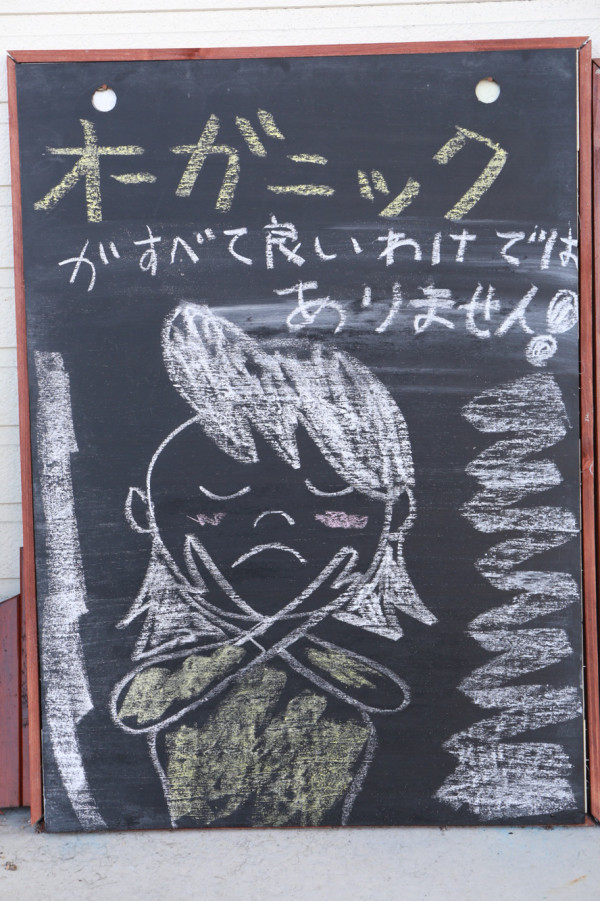 オーガニック
がすべて良いわけでは
ありません!